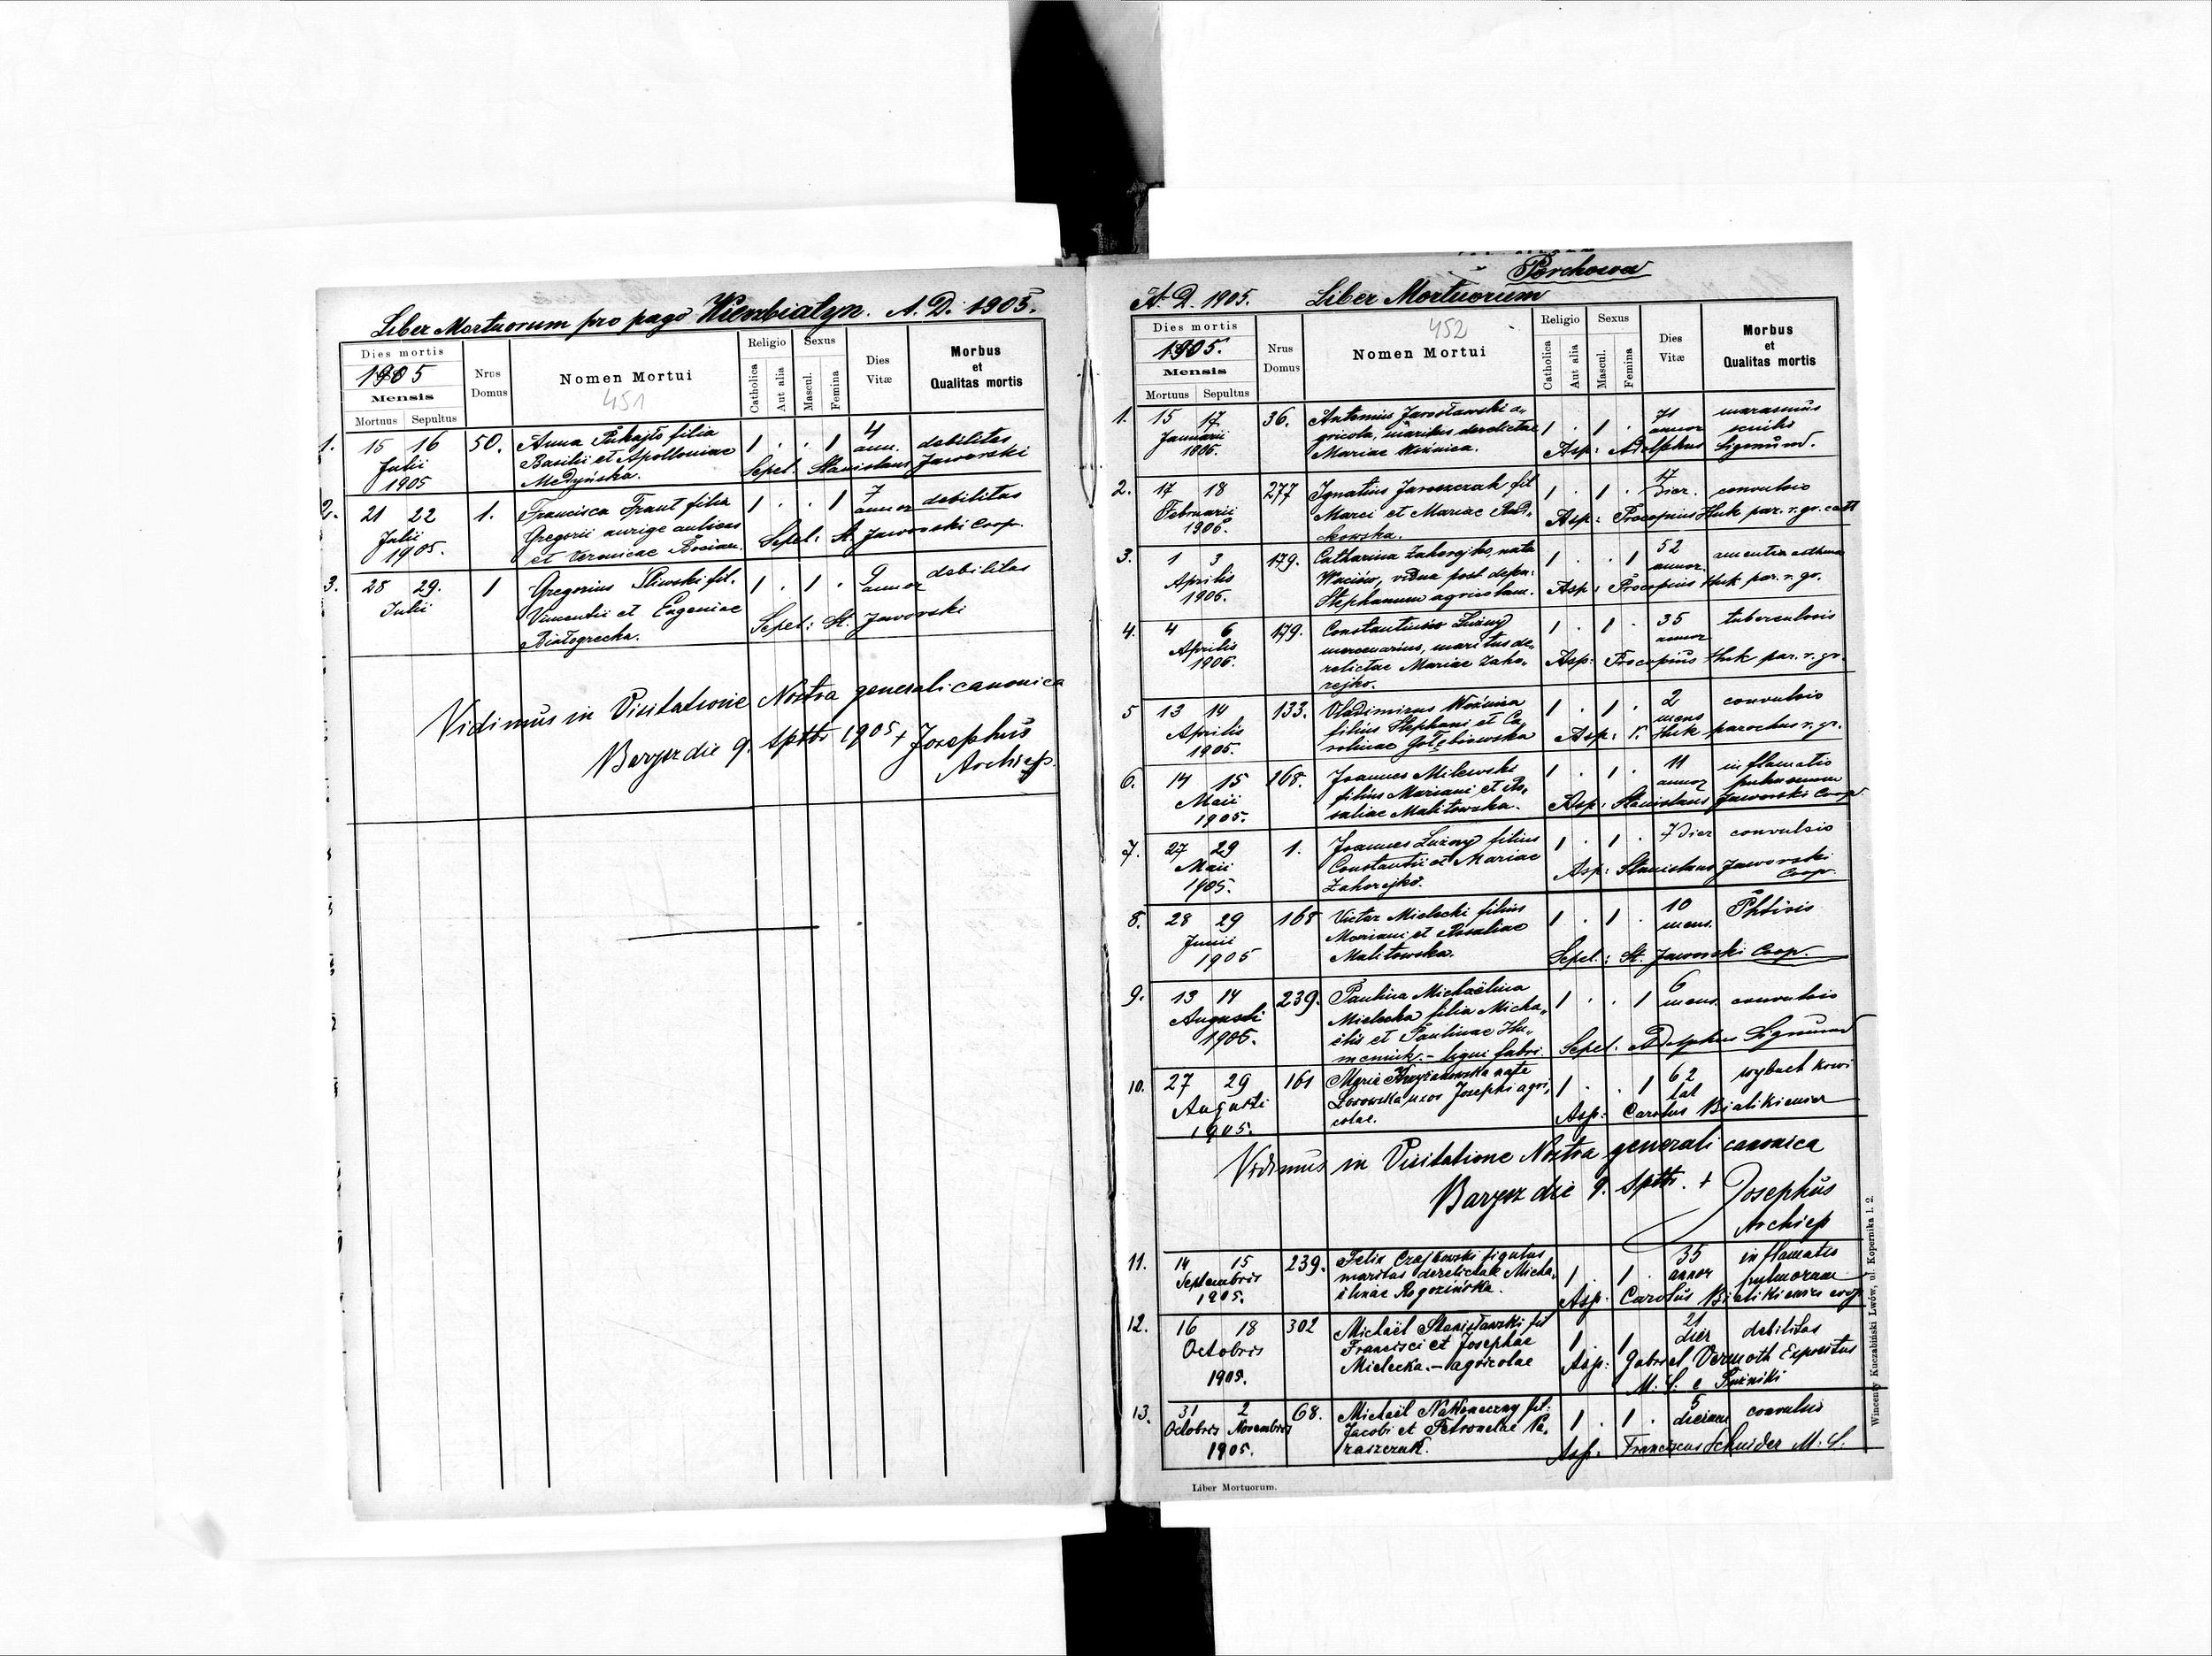 Liber Mortuorum pro pago Wierzbiatyn. A. D. 1905.
Dies mortis
1905
Mensis
Mortuus Sepultus
Nrus Domus
Nomen Mortui
451
Religio
Catholica
Aut alia
Sexus
Mascul.
Femina
Dies Vitæ
Morbus
et
Qualitas mortis
1. 15 16 50. Anna Pukajło filia 1 . . 1 4 debilitas
Julii Basilii et Apolloniae ann.
1905 Medyńska. Sepel. Stanislaus Jaworski
2. 21 22 1. Francisca Traut filia 1 . . 1 7 debilitas
Julii Gregorii aurigae annor
1905. et Veronicae Bocian. Sepel: St. Jaworski Coop.
3. 28 29. 1 Gregorius Śliwski fil. 1 . 1 . 9 debilitas
Julii Vincentii et Eugeniae annor
Białogrecka. Sepel: St. Jaworski
Vidimus in Visitatione Nostra generali canonica
Barysz die 9. Sptbr 1905 + Josephus
Archiep.
Porchowa
A. D. 1905. Liber Mortuorum
Dies mortis
1905.
Mensis
Mortuus Sepultus
Nrus Domus
452
Nomen Mortui
Religio
Catholica
Aut alia
Sexus
Mascul.
Femina
Dies Vitæ
Morbus
et
Qualitas mortis
1. 15 17 36. Antonius Jarosławski a„ 1 . 1 . 71 marasmus
Januarii gricola, maritus derelictae annor senilis
1905. Mariae Woźnica. Asp: Adolphus Sigmund.
2. 17 18 277 Ignatius Jaroszczak fil 1 . 1 . 17 convulsio
Februarii Marci et Mariae Rud„ Dier.
1905. kowska. Asp: Procopius Huk par. r. gr. catt
3. 1 3 179. Catharina Zahorejko, nata 1 . . 1 52
Aprilis vidua post defu: annor
1905. Stephanum agricolam. Asp: Procopius Huk par. r. gr.
4. 4 6 179. Constantinus Luźny 1 . 1 . 35 tuberculosis
Aprilis mercenarius, maritus de„ annor
1905. relictae Mariae Zaho„ Asp: Procopius Huk par. r. gr.
rejko.
5 13 14 133. Vladimirus Woźnica 1 . 1 . 2 convulsio
Aprilis filius Stephani et Ca„ mens
1905. rolinae Gołębiowska Asp: P. Huk parochus r. gr.
6. 14 15 168. Joannes Milewski 1 . 1 . 11 inflamatio
Maii filius Mariani et Ro„ annor pulmonum
1905. saliae Malitowska. Asp: Stanislaus Jaworski Coop.
7. 27 29 1. Joannes Luźny filius 1 . 1 . 7 Dier convulsio
Maii Constantii et Mariae
1905. Zahorejko. Asp: Stanislaus Jaworski Coop.
8. 28 29 168 Victor Mielecki filius 1 . 1 . 10 Phtisis
Junii Mariani et Rosaliae mens.
1905 Malitowska. Sepel.: St. Jaworski Coop.
9. 13 14 239. Paulina Michaëlina 1 . . 1 6 convulsio
Augusti Mielecka filia Micha„ mens.
1905. ëlis et Paulinae Hu„
meniuk. – ligni fabri. Sepel: Adolphus Sigmund
10. 27 29 161 Maria Krzyżanowska nata 1 . . 1 62 wybuch krwi
Augusti uxor Josephi agri„ lat
1905. colae. Asp: Carolus Bialikiewicz
Vidimus in Visitatione Nostra generali canonica
Barysz die 9. Sptbr. + Josephus
Archiep
11. 14 15 239. Felix Czajkowski figulus 1 . 1 . 35 inflamatio
Septembris maritus derelictae Micha„ annor pulmonum
1905. ëlinae Rogozińska. Asp: Carolus Bialikiewicz coop
12. 16 18 302 Michaël Stanisławski fil 1 . 1 21 debilitas
Octobris Francisci et Josephae dier
1905. Mielecka. – agricolae Asp: Gabriel Vermoth Expositus
M. S. e Puźniki
13. 31 2 68. Michaël Nakoneczny fil: 1 . 1 . 5 convulsio
Octobris Novembris Jacobi et Petronelae Ka„ dierum
1905. raszczuk. Asp: Franciscus Schnider M. S.
Liber Mortuorum.
Wincenty Kuczabiński Lwów, ul. Kopernika l. 2.